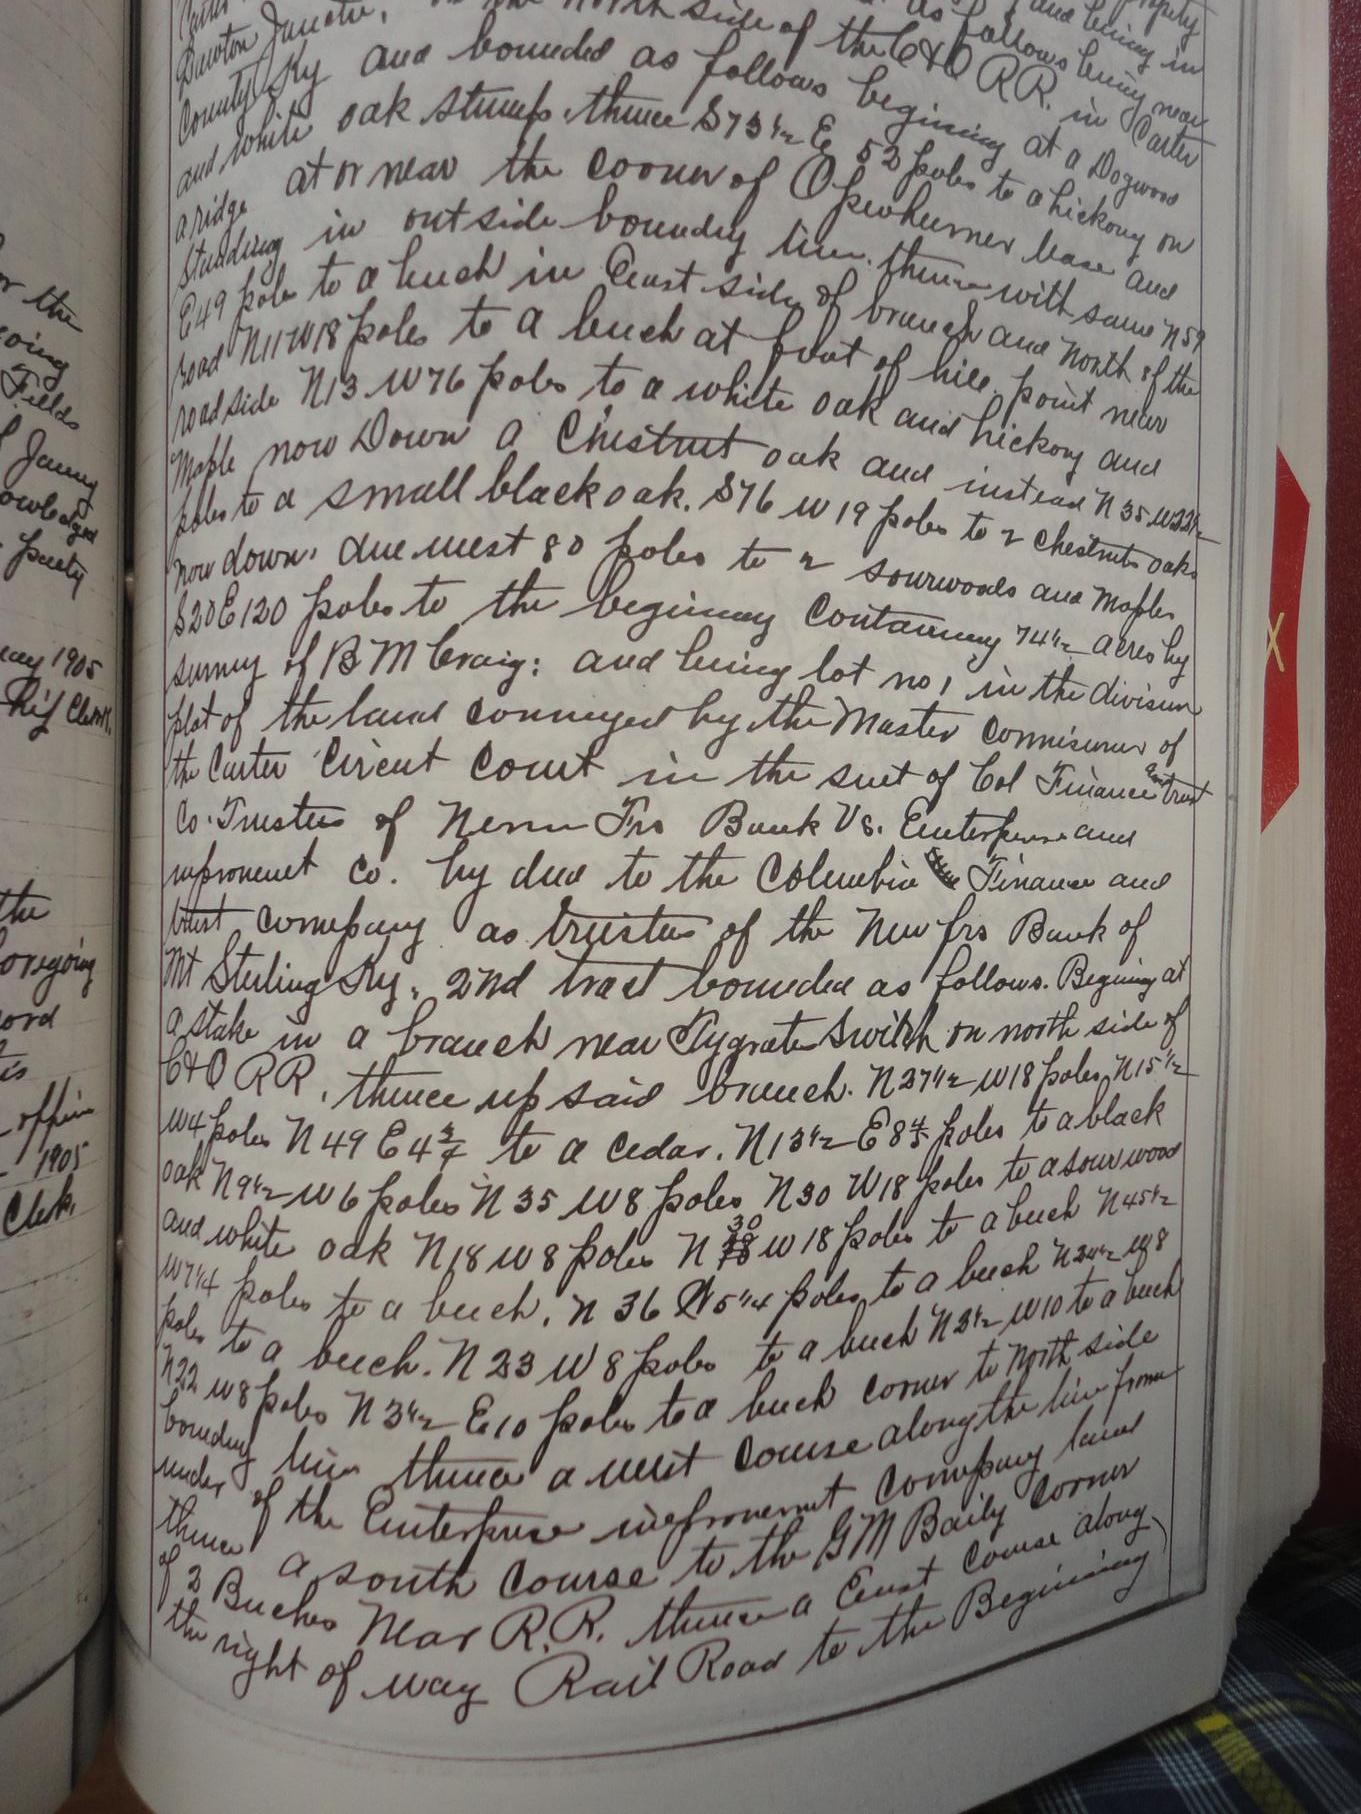 or the
going
Fields
of Janny
owledged
party
may 1905
Rif Clerk.
the
oregoing
ord
office
1905
Clerk.
property
as follows and being in
Denton Junction, on the North side of the C&O R.R. in Carter
County Ky and bounded as follows begining at a Dogwood
and white oak stump. thence S 73 1/2 E 52 poles to a hickory on
a ridge at or near the cooner of Openheimer base and
standing in outside boundry line. thence with same N 59
E 49 pole to a buch in East side of branch and North of the
road N 11 W 18 poles to a buch at foot of hill. point near
road side N 13 W 76 poles to a white oak and hickory and
Maple now Down a Chestnut oak and instead N 35 W 22 1/2
poles to a small black oak. S 76 W 19 poles to 2 Chestnut oaks
now down. due west 80 poles to 2 sourwoods and Maples
S 20 E 120 poles to the begining Containing 74 1/2 acres by
survey of B M Craig: and being lot no 1 in the division
plot of the land conveyed by the Master Commisioner of
the Carter Circut Court in the suit of Col Finance and trust
Co. Trustee of New Frs Bank Vs. Enterprise and
improvment Co. by deed to the Columbia Finance and
trust company as trustee of the New frs Bank of
Mt Sterling Ky. 2nd tract bounded as follows. Begining at
a stake in a branch near Tygrats Switch on north side of
C&O R R, thence up said branch. N 27 1/2 W 18 poles, N 15 1/2
W 4 poles N 49 E 4 3/4 to a cedar. N 13 1/2 E 8 4/5 poles to a black
oak N 9 1/2 W 6 poles N 35 W 8 poles N 30 W 18 poles to a sourwood
and white oak N 18 W 8 poles N 30 W 18 poles to a buch N 45 1/2
W 7 1/4 poles to a buch. N 36 W 5 1/4 poles to a buch N 24 1/2 W 8
poles to a buch. N 23 W 8 poles to a buch N 2 1/2 W 10 to a buch
N 22 W 8 poles N 3 1/2 E 10 poles to a buch corner to North side
boundry line thence a west course along the line from
under of the Enterprise improvemnt company land
thence a south course to the G M Baily Corner
of 2 Buches Near R.R. thence a East course along
the right of way Rail Road to the Begining
X